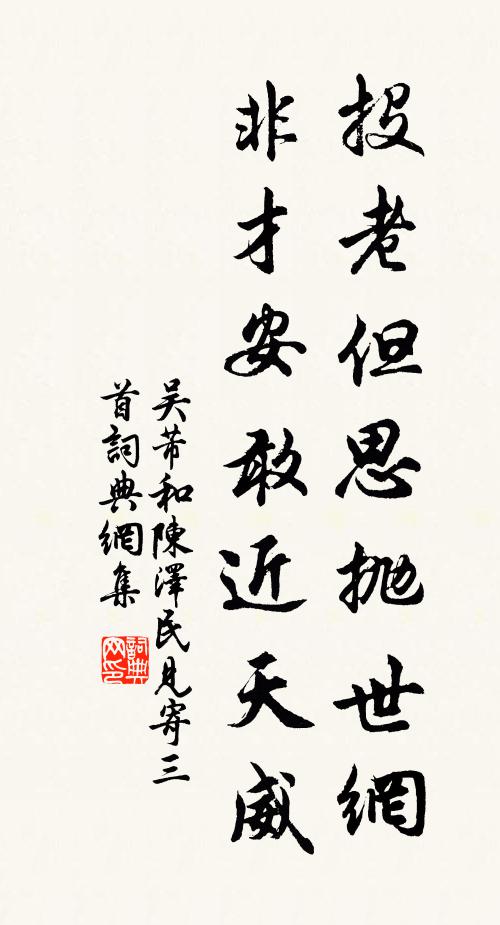 投老但思拋世網
非才安敢近天威
吴芾和陳澤民見寄三
首詞典網集
詞典
网印